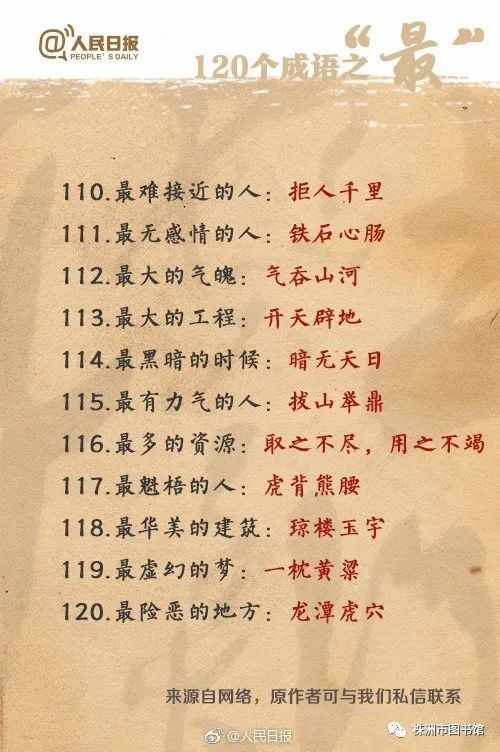 @人民日报
PEOPLE'S DAILY
120个成语之“最”
110.最难接近的人：拒人千里
111.最无感情的人：铁石心肠
112.最大的气魄：气吞山河
113.最大的工程：开天辟地
114.最黑暗的时候：暗无天日
115.最有力气的人：拔山举鼎
116.最多的资源：取之不尽，用之不竭
117.最魁梧的人：虎背熊腰
118.最华美的建筑：琼楼玉宇
119.最虚幻的梦：一枕黄粱
120.最险恶的地方：龙潭虎穴
来源自网络，原作者可与我们私信联系
@人民日报
株洲市图书馆